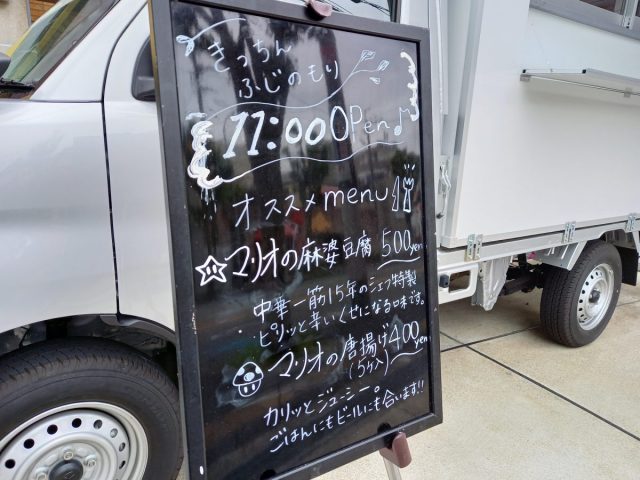 きっちん
ふじのもり
11:00 Open♪
オススメmenu
マリオの麻婆豆腐 500yen
中華一筋15年のシェフ特製
ピリッと辛いくせになる味です。
マリオの唐揚げ 400yen
(5ケ入)
カリッとジューシー。
ごはんにもビールにも合います!!